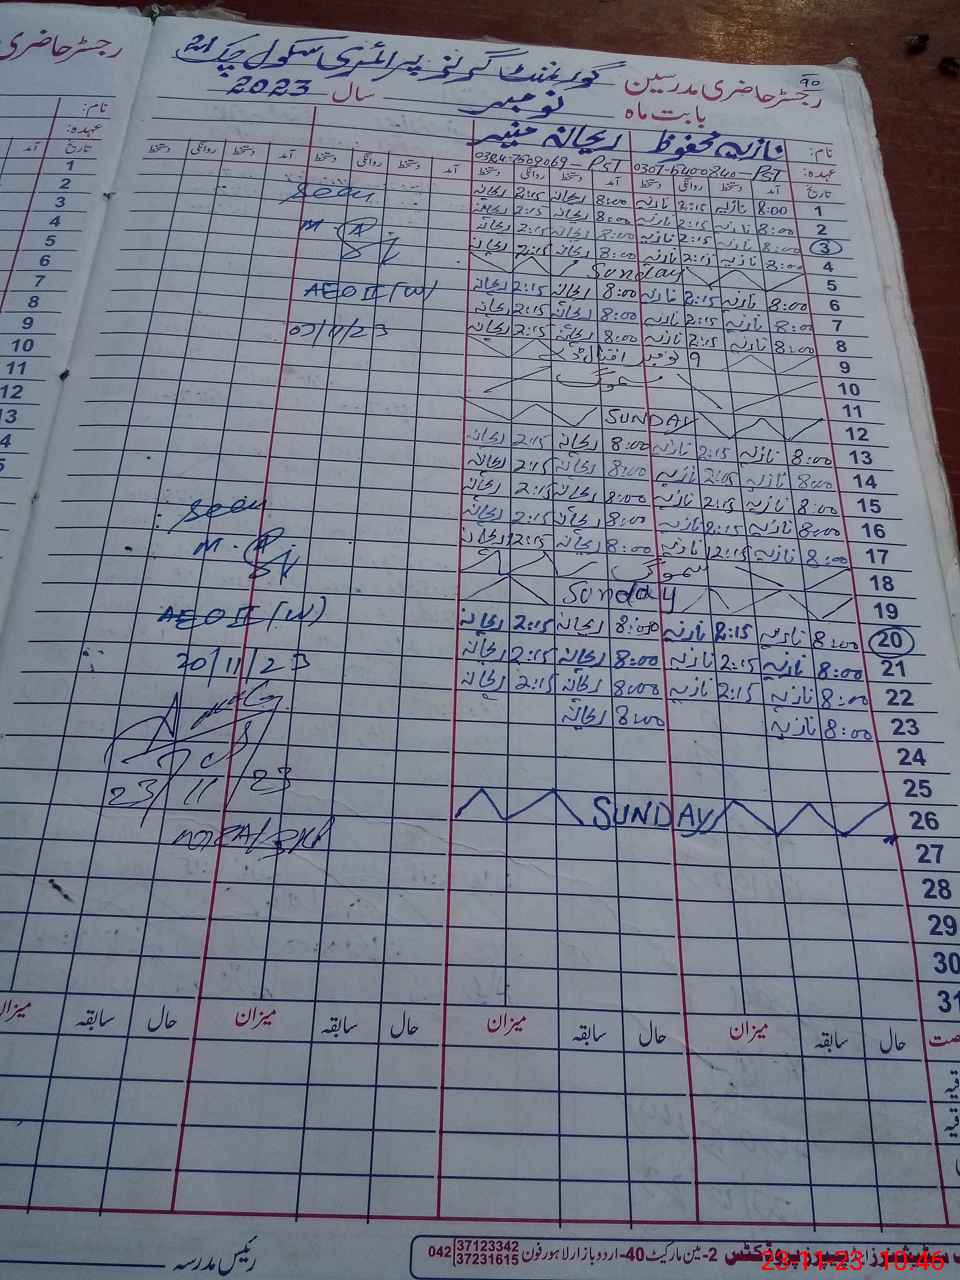 رجسٹر حاضری مدرسین گورنمنٹ گرلز پرائمری سکول چک 21
بابت ماہ نومبر سال 2023
نام: نازیہ محفوظ ریحانہ منیر
عہدہ: PST PST
تاریخ آمد دستخط روانگی دستخط آمد دستخط روانگی دستخط آمد دستخط روانگی دستخط آمد دستخط روانگی دستخط
1 8:00 نازیہ 2:15 نازیہ 8:00 ریحانہ 2:15 ریحانہ
2 8:00 نازیہ 2:15 نازیہ 8:00 ریحانہ 2:15 ریحانہ
3 8:00 نازیہ 2:15 نازیہ 8:00 ریحانہ 2:15 ریحانہ
4 8:00 نازیہ 2:15 نازیہ 8:00 ریحانہ 2:15 ریحانہ
5 Sunday
6 8:00 نازیہ 2:15 نازیہ 8:00 ریحانہ 2:15 ریحانہ
7 8:00 نازیہ 2:15 نازیہ 8:00 ریحانہ 2:15 ریحانہ
8 8:00 نازیہ 2:15 نازیہ 8:00 ریحانہ 2:15 ریحانہ
9 9 نومبر اقبال ڈے
10 سموگ
11
12 SUNDAY
13 8:00 نازیہ 2:15 نازیہ 8:00 ریحانہ 2:15 ریحانہ
14 8:00 نازیہ نازیہ 8:00 ریحانہ 2:15 ریحانہ
15 8:00 نازیہ 2:15 نازیہ 8:00 ریحانہ 2:15 ریحانہ
16 8:00 نازیہ 2:15 نازیہ 8:00 ریحانہ 2:15 ریحانہ
17 8:00 نازیہ 12:15 نازیہ 8:00 ریحانہ 12:15 ریحانہ
18 سموگ
19 Sunday
20 8:00 نازیہ 2:15 نازیہ 8:00 ریحانہ 2:15 ریحانہ
21 8:00 نازیہ 2:15 نازیہ 8:00 ریحانہ 2:15 ریحانہ
22 8:00 نازیہ 2:15 نازیہ 8:00 ریحانہ 2:15 ریحانہ
23 8:00 نازیہ 8:00 ریحانہ
24
25
26 SUNDAY
27
28
29
30
31
Seen
AEO II (W)
Seen
AEO II (W)
20/11/23
23/11/23
حال سابقہ میزان حال سابقہ میزان حال سابقہ میزان حال سابقہ میزان
رئیس مدرسہ
2-مین مارکیٹ 40-اردو بازار لاہور فون 042 37123342 37231615
23-11-23 10:46